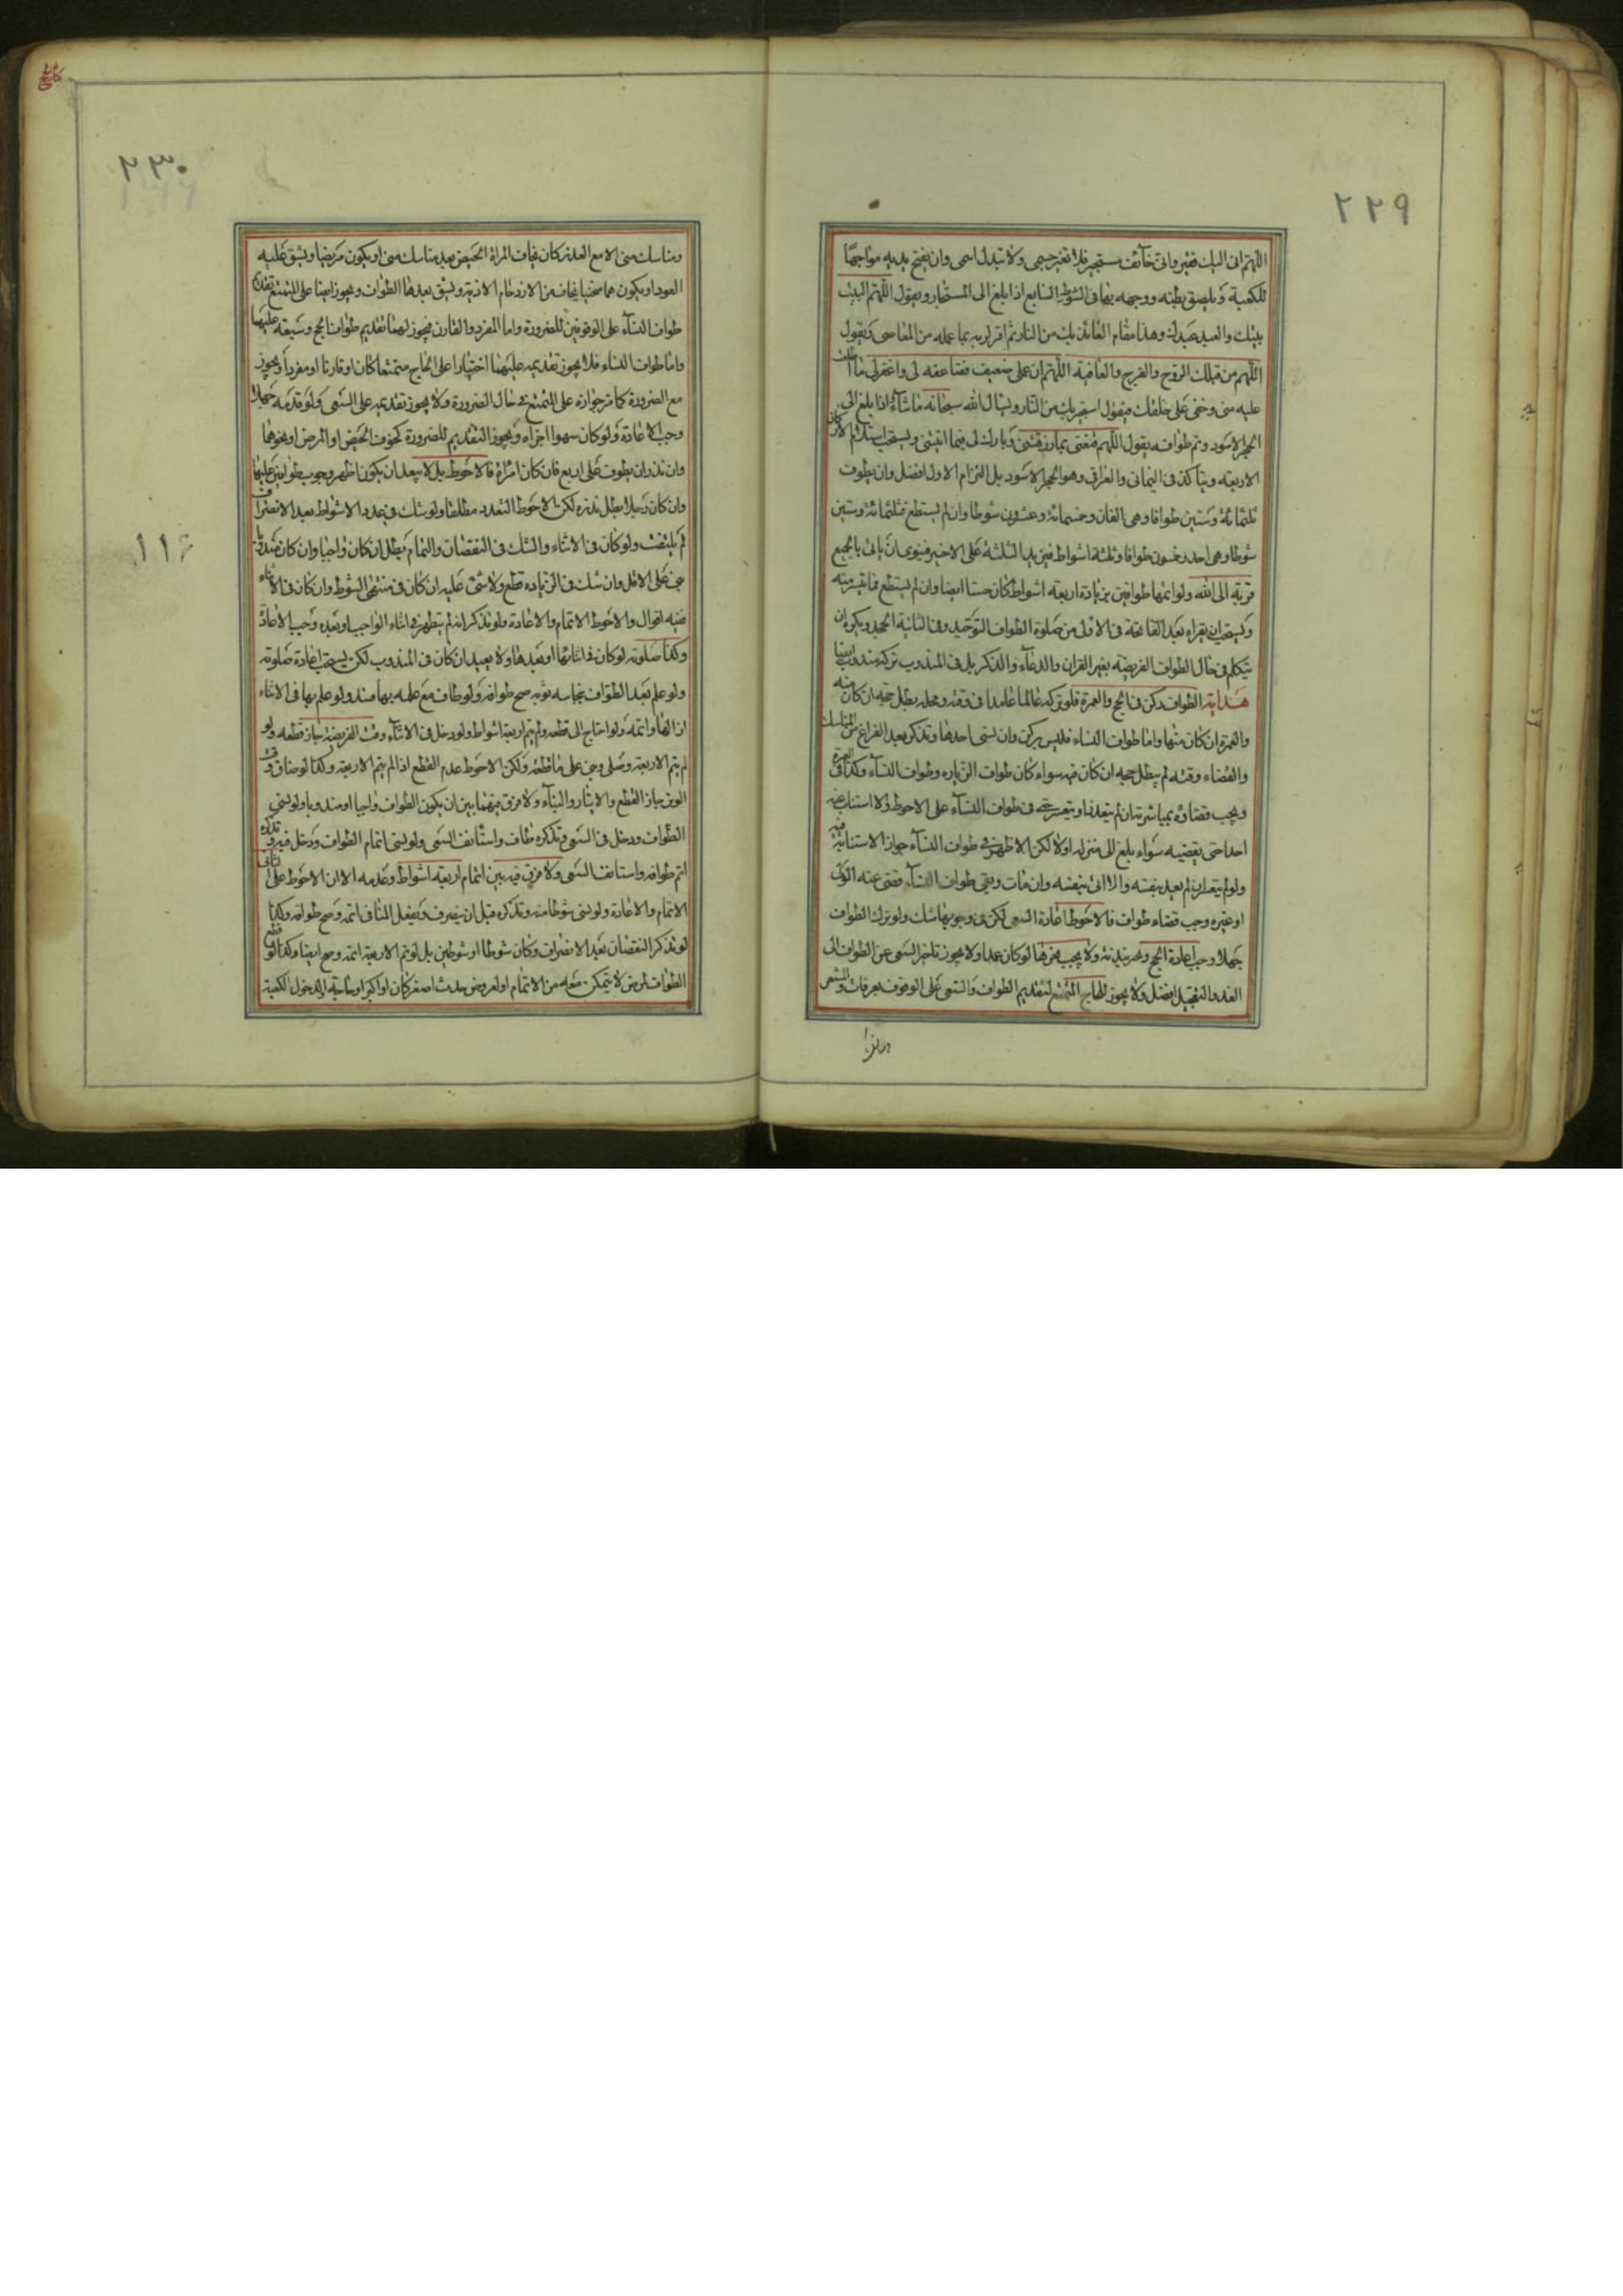 ٢٢٩
اللهم انى اليك فقير وانى خآئف مستجير فلا تغير جسمى ولا تبدل اسمى وان يفتح يديه مواجها
للكعبة و يلصق بطنه ووجهه بها فى الشوط السابع اذا بلغ الى المستجار ويقول اللهم البيت
بيتك والعبد عبدك وهذا مقام العائذ بك من النار ثم اقر لربه بما عمله من المعاصى ويقول
اللهم من قبلك الروح والفرج والعافية اللهم ان عملى ضعيف فضاعفه لى واغفر لى ما اطلعت
عليه منى وخفى على خلقك فيقول استجير بك من النار ويسال الله سبحانه ما شآء اذا بلغ الى
الحجر الاسود وتم طوافه يقول اللهم قنعنى بما رزقتنى وبارك لى فيما اتيتنى ويستحب استلام الاركان
الاربعة ويتأكد فى اليمانى والعراقى وهو الحجر الاسود بل التزام الاول افضل وان يطوف
ثلثمائة وستين طوافا وهى الفان وخمسمائة وعشرون شوطا وان لم يستطع فثلثمائة وستين
شوطا وهى احد وخمسون طوافا وثلثة اشواط فيزيد الثلثة على الاخير فينوى ان ياتى بالجميع
قربة الى الله ولو اتمها طوافين بزيادة اربعة اشواط كان حسنا ايضا وان لم يستطع فما تيسر منه
ويستحب ان يقراء بعد الفاتحة فى الاولى من صلوة الطواف التوحيد وفى الثانية الجحد ويكره ان
يتكلم فى حال الطواف الفريضة بغير القران والدعآء والذكر بل فى المندوب تركه مندوب ايضا
هداية الطواف ركن فى الحج والعمرة فلو تركه عالما عامدا فى وقته ومحله بطل حجه ان كان منه
والعمرة ان كان منها واما طواف النساء فليس بركن وان نسى احدها وتذكر بعد الفراغ من المناسك
والقضاء وقته لم يبطل حجه ان كان فيه سواء كان طواف الزيارة وطواف النسآء وكذا فى العمرة
ويجب قضاؤه بمباشرته ان لم يتعذر او يتعسر حتى فى طواف النسآء على الاحوط ولا استناب عنه
احدا حتى يقضيه سواء بلغ الى منزله اولا لكن الاظهر فى طواف النسآء جواز الاستنابة فيه
ولو لم يتعذر لم يعد بنفسه والا اتى بنفسه وان مات وبقى طواف النسآء قضى عنه الولى
او غيره وجب قضاء طواف فالاحوط اعادة السعى لكن فى وجوبها شك ولو ترك الطواف
جهلا وجب اعادة الحج ونحر بدنة ولا يجب نحرها لو كان عمدا ولا يجوز تاخير السعى عن الطواف الى
الغد والتعجيل افضل ولا يجوز للحاج المتمتع لتقديم الطواف والسعى على الوقوف بعرفات والمشعر
٢٣٠
ومناسك منى الا مع العذر كان خافت المراة الحيض بعد مناسك منى او يكون مريضا ويشق عليه
العود او يكون هما شيخا يخاف من الازدحام الاذية ويشق بعدها الطواف ويجوز ايضا على المتمتع تقديم
طواف النسآء على الوقوفين للضرورة واما المفرد والقارن فيجوز لهما تقديم طواف الحج وسعيه عليهما
واما طواف النساء فلا يجوز تقديمه عليهما اختيارا على الحاج متمتعا كان او قارنا او مفردا ويجوز
مع الضرورة كما مر جوازه على المتمتع فى حال الضرورة ولا يجوز تقديمه على السعى ولو قدمه جهلا
وجب الاعادة ولو كان سهوا اجزاه ويجوز التقديم للضرورة كخوف الحيض او المرض او نحوهما
وان نذر ان يطوف على اربع فان كان امراة فالاحوط بل لا يبعد ان يكون اظهر وجوب طوافين عليها
وان كان رجلا بطل نذره لكن الاحوط التعدد مطلقا ولو شك فى عدد الاشواط بعد الانصراف
لم يلتفت ولو كان فى الاثناء والشك فى النقصان والتمام بطل ان كان واجبا وان كان مندوبا
بنى على الاقل وان شك فى الزيادة قطع ولا شئ عليه ان كان فى منتهى الشوط وان كان فى الاثناء
ففيه اقوال والاحوط الاتمام والاعادة ولو تذكر انه لم يتطهر فى اثناء الواجب او بعده وجب الاعادة
وكذا صلوته لو كان فى اثنائها او بعدها ولا يعيد ان كان فى المندوب لكن يستحب اعادة صلوته
ولو علم بعد الطواف بنجاسة ثوبه صح طوافه ولو طاف مع علمه بها فسد ولو علم بها فى الاثناء
ازالها واتمه ولو احتاج الى قطعه ولم يتم اربعة اشواط ولو دخل فى الاثنآء وقت الفريضة جاز قطعه ولو
لم يتم الاربعة وصلى وبنى على ما قطعه ولكن الاحوط عدم القطع اذا لم يتم الاربعة وكذا لو ضاق وقت
الوتر جاز القطع والايثار والبنآء ولا فرق فيهما بين ان يكون الطواف واجبا او مندوبا ولو نسى
الطواف ودخل فى السعى فتذكره طاف واستانف السعى ولو نسى اتمام الطواف ودخل فيه وتذكره
اتم طوافه واستانف السعى ولا فرق فيه بين اتمام اربعة اشواط وعدمه الا ان الاحوط على الثانى
الاتمام والاعادة ولو نسى شوطا منه وتذكره قبل ان ينصرف ويفعل المنافى اتمه وصح طوافه وكذا
لو تذكر النقصان بعد الانصراف وكان شوطا او شوطين بل لو تم الاربعة اتمه وصح ايضا وكذا لو قطع
الطواف لمرض لا يتمكن معه من الاتمام او لعروض حدث اصغر كان او اكبر او حاجة او لدخول الكعبة